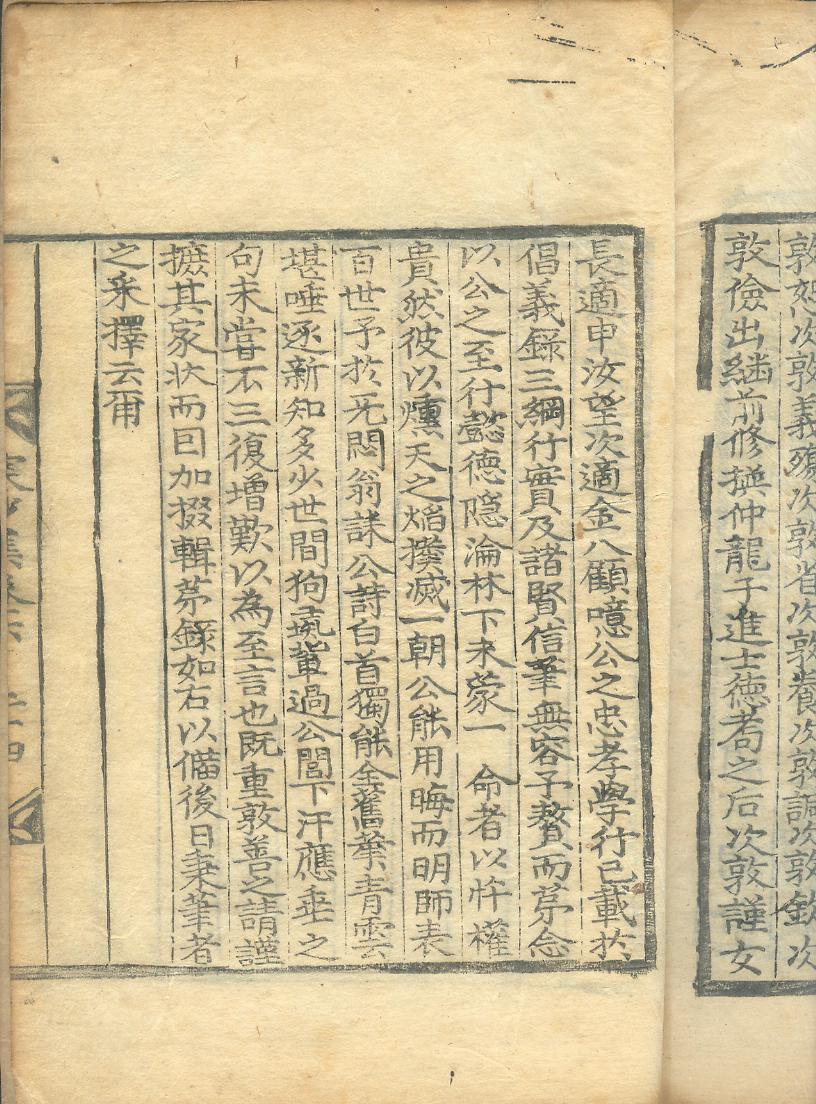 敦恕次敦義殤次敦省次敦養次敦詞次敦欽次
敦儉出継前修撰仲龍子進士德耇之后次敦謹女
長適申汝望次適金八顧噫公之忠孝學行已載扵
倡義錄三綱行實及諸賢信筆無容予贅而苐念
以公之至行懿德隐淪林下未蒙一命者以忤權
貴然彼以燻天之焰撲滅一朝公能用晦而明師表
百世予扵无悶翁誄公詩白首獨能全舊業青雲
堪唾逐新知多少世間狗彘輩過公閭下汗應垂之
句未嘗不三復增歎以為至言也既重敦善之請謹
摭其家狀而囙加掇輯苐錄如右以偹後日秉筆者
之采擇云甭